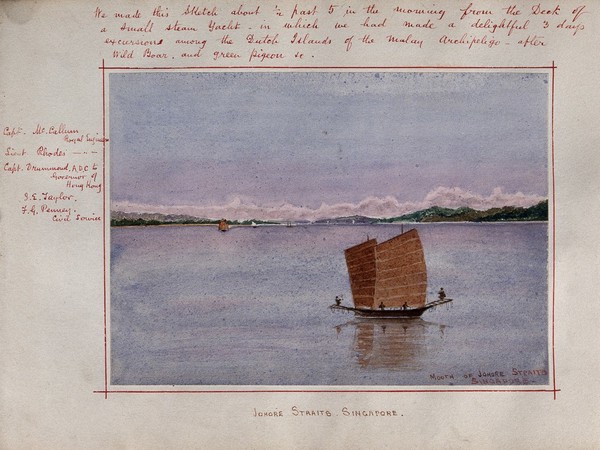 We made this Sketch about ½ past 5 in the morning from the Deck of
a small steam Yacht - in which we had made a delightful 3 days
excursion among the Dutch Islands of the Malay Archipeligo - after
Wild Boar, and green pigeon &c.
Capt. McCallum
Royal Engin
Lieut Rhodes
Capt. Drummond, A.D.C to
Governor of
Hong Kong
J.E. Taylor.
F.G. Penney.
Civil Service
MOUTH OF JOHORE STRAITS
SINGAPORE-
JOHORE STRAITS. SINGAPORE.